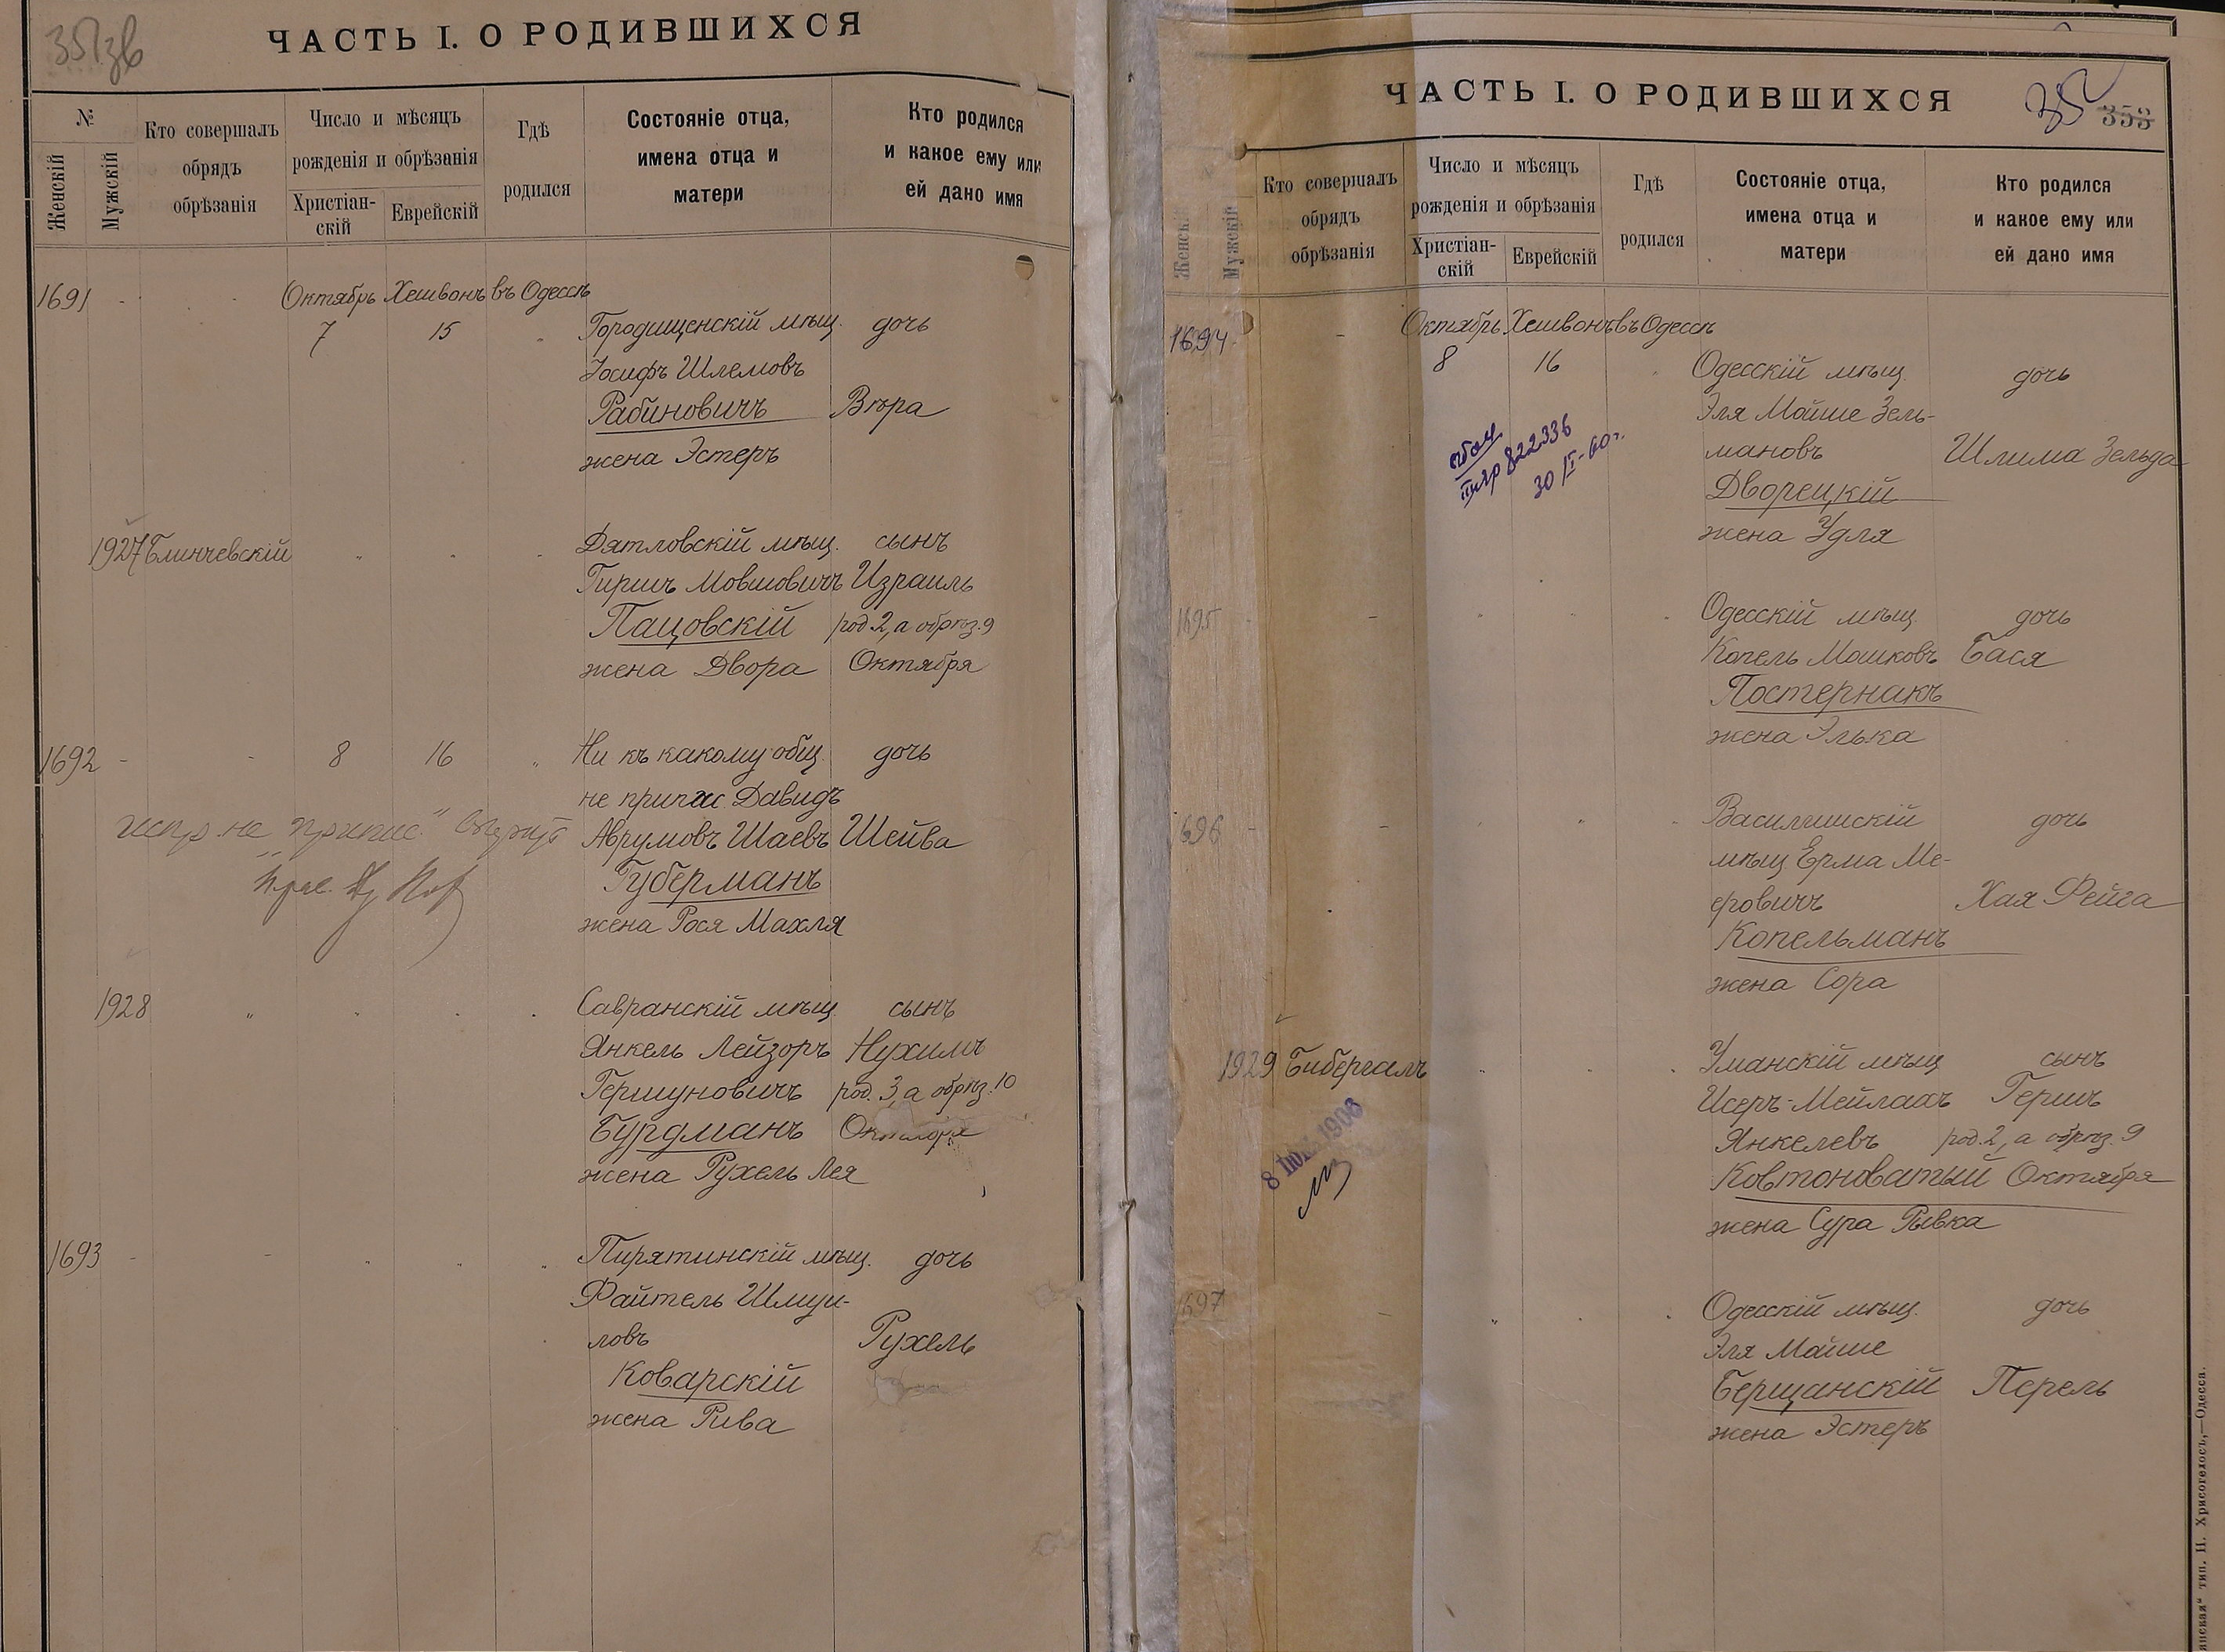 ЧАСТЬ I. О РОДИВШИХСЯ
№
Женскій
Мужскій
Кто совершалъ
обрядъ
обрѣзанія
Число и мѣсяцъ
рожденія и обрѣзанія
Христіан-
скій
Еврейскій
Гдѣ
родился
Состояніе отца,
имена отца и
матери
Кто родился
и какое ему или
ей дано имя
1691 Октябрь Хешвонъ въ Одессѣ
7 15 Городищенскій мѣщ. дочь
Іосифъ Шлемовъ
Рабиновичъ Вѣра
жена Эстеръ
1927 Блинчевскій Дятловскій мѣщ. сынъ
Гиршъ Мовшовичъ Израиль
Пацовскій род. 2, а обрѣз. 9
жена Двора Октября
1692 8 16 Ни къ какому общ. дочь
не припис Давидъ
Аврумовъ Шаевъ Шейва
Губерманъ
жена Рося Махля
1928 " Савранскій мѣщ. сынъ
Янкель Лейзоръ Нухимъ
Гершуновичъ род. 3, а обрѣз. 10
Бурдманъ Октября
жена Рухель Лея
1693 Пирятинскій мѣщ. дочь
Файтель Шмуи-
ловъ Рухель
Коварскій
жена Рива
ЧАСТЬ I. О РОДИВШИХСЯ
352 353
Женскій
Мужскій
Кто совершалъ
обрядъ
обрѣзанія
Число и мѣсяцъ
рожденія и обрѣзанія
Христіан-
скій
Еврейскій
Гдѣ
родился
Состояніе отца,
имена отца и
матери
Кто родился
и какое ему или
ей дано имя
1694 Октябрь Хешвонъ въ Одессѣ
8 16 Одесскій мѣщ. дочь
Эля Мойше Зель-
мановъ Шлима Зельда
Дворецкій
жена Удля
822336
30/I-60г.
1695 Одесскій мѣщ. дочь
Копель Мошковъ Бася
Постернакъ
жена Элька
1696 Василишскій дочь
мѣщ Ерма Ме-
еровичъ Хая Фейга
Копельманъ
жена Сора
1929 Бибергалъ Уманскій мѣщ сынъ
Исеръ-Мейлахъ Гершъ
Янкелевъ род. 2, а обрѣз. 9
Ковтоноватый Октября
жена Сура Рывка
1697 Одесскій мѣщ. дочь
Эля Мойше
Берщанскій Перель
жена Эстеръ
тип. Н. Хрисогелосъ,—Одесса.